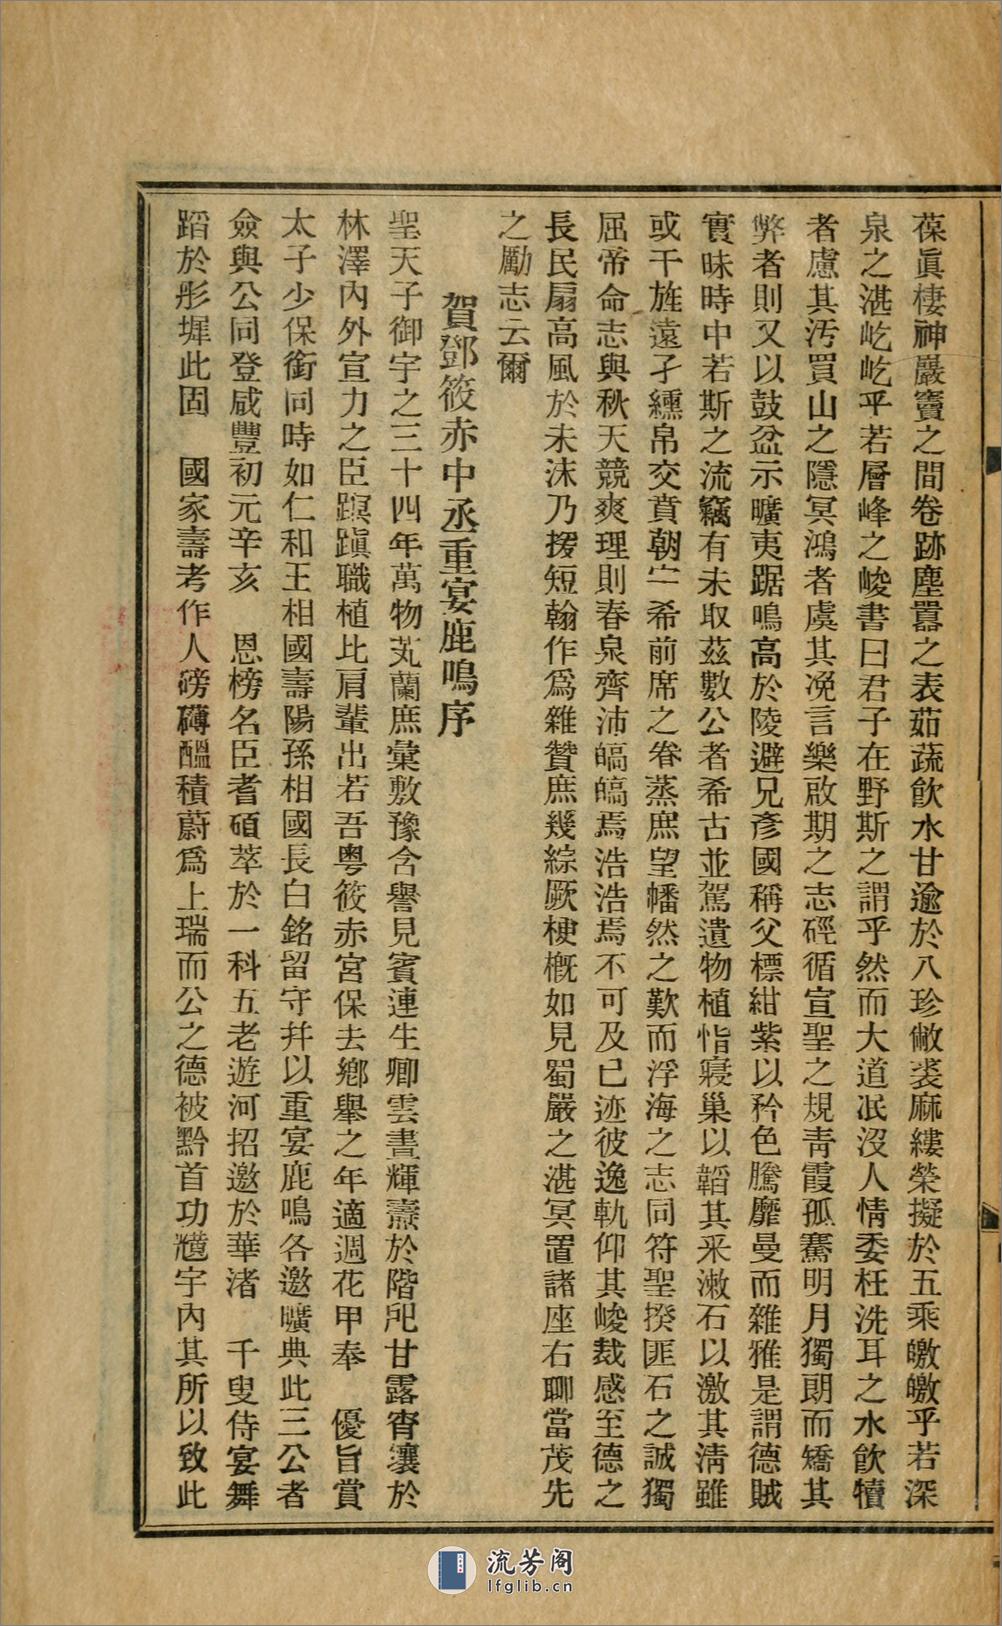 葆眞棲神巖竇之間卷跡塵囂之表茹蔬飲水甘逾於八珍敝裘麻縷榮擬於五乘皦皦乎若深
泉之湛屹屹乎若層峰之峻書曰君子在野斯之謂乎然而大道冺沒人情委枉洗耳之水飲犢
者慮其汚買山之隱冥鴻者虞其凂言樂啟期之志硜循宣聖之規靑霞孤騫明月獨朗而矯其
弊者則又以鼓盆示曠夷踞鳴高於陵避兄彥國稱父標紺紫以矜色騰靡曼而雜雅是謂德賊
實昧時中若斯之流竊有未取茲數公者希古並駕遺物植恉寢巢以韜其采漱石以激其淸雖
或干旌遠孑纁帛交賁朝宁希前席之眷蒸庶望幡然之歎而浮海之志同符聖揆匪石之誠獨
屈帝命志與秋天競爽理則春泉齊沛皜皜焉浩浩焉不可及已迹彼逸軌仰其峻裁感至德之
長民扇高風於未沬乃援短翰作爲雜贊庶幾綜厥梗槪如見蜀嚴之湛冥置諸座右聊當茂先
之勵志云爾
賀鄧筱赤中丞重宴鹿鳴序
聖天子御宇之三十四年萬物芄蘭庶彙敷豫含譽見賓連生卿雲晝輝燾於階戺甘露宵瀼於
林澤內外宣力之臣踑蹎職植比肩輩出若吾粤筱赤宮保去鄉舉之年適週花甲奉　優旨賞
太子少保銜同時如仁和王相國壽陽孫相國長白銘留守幷以重宴鹿鳴各邀曠典此三公者
僉與公同登咸豐初元辛亥　恩榜名臣耆碩萃於一科五老遊河招邀於華渚　千叟侍宴舞
蹈於彤墀此固　國家壽考作人磅礡醞積蔚爲上瑞而公之德被黔首功爡宇內其所以致此
流芳阁
lfglib.cn